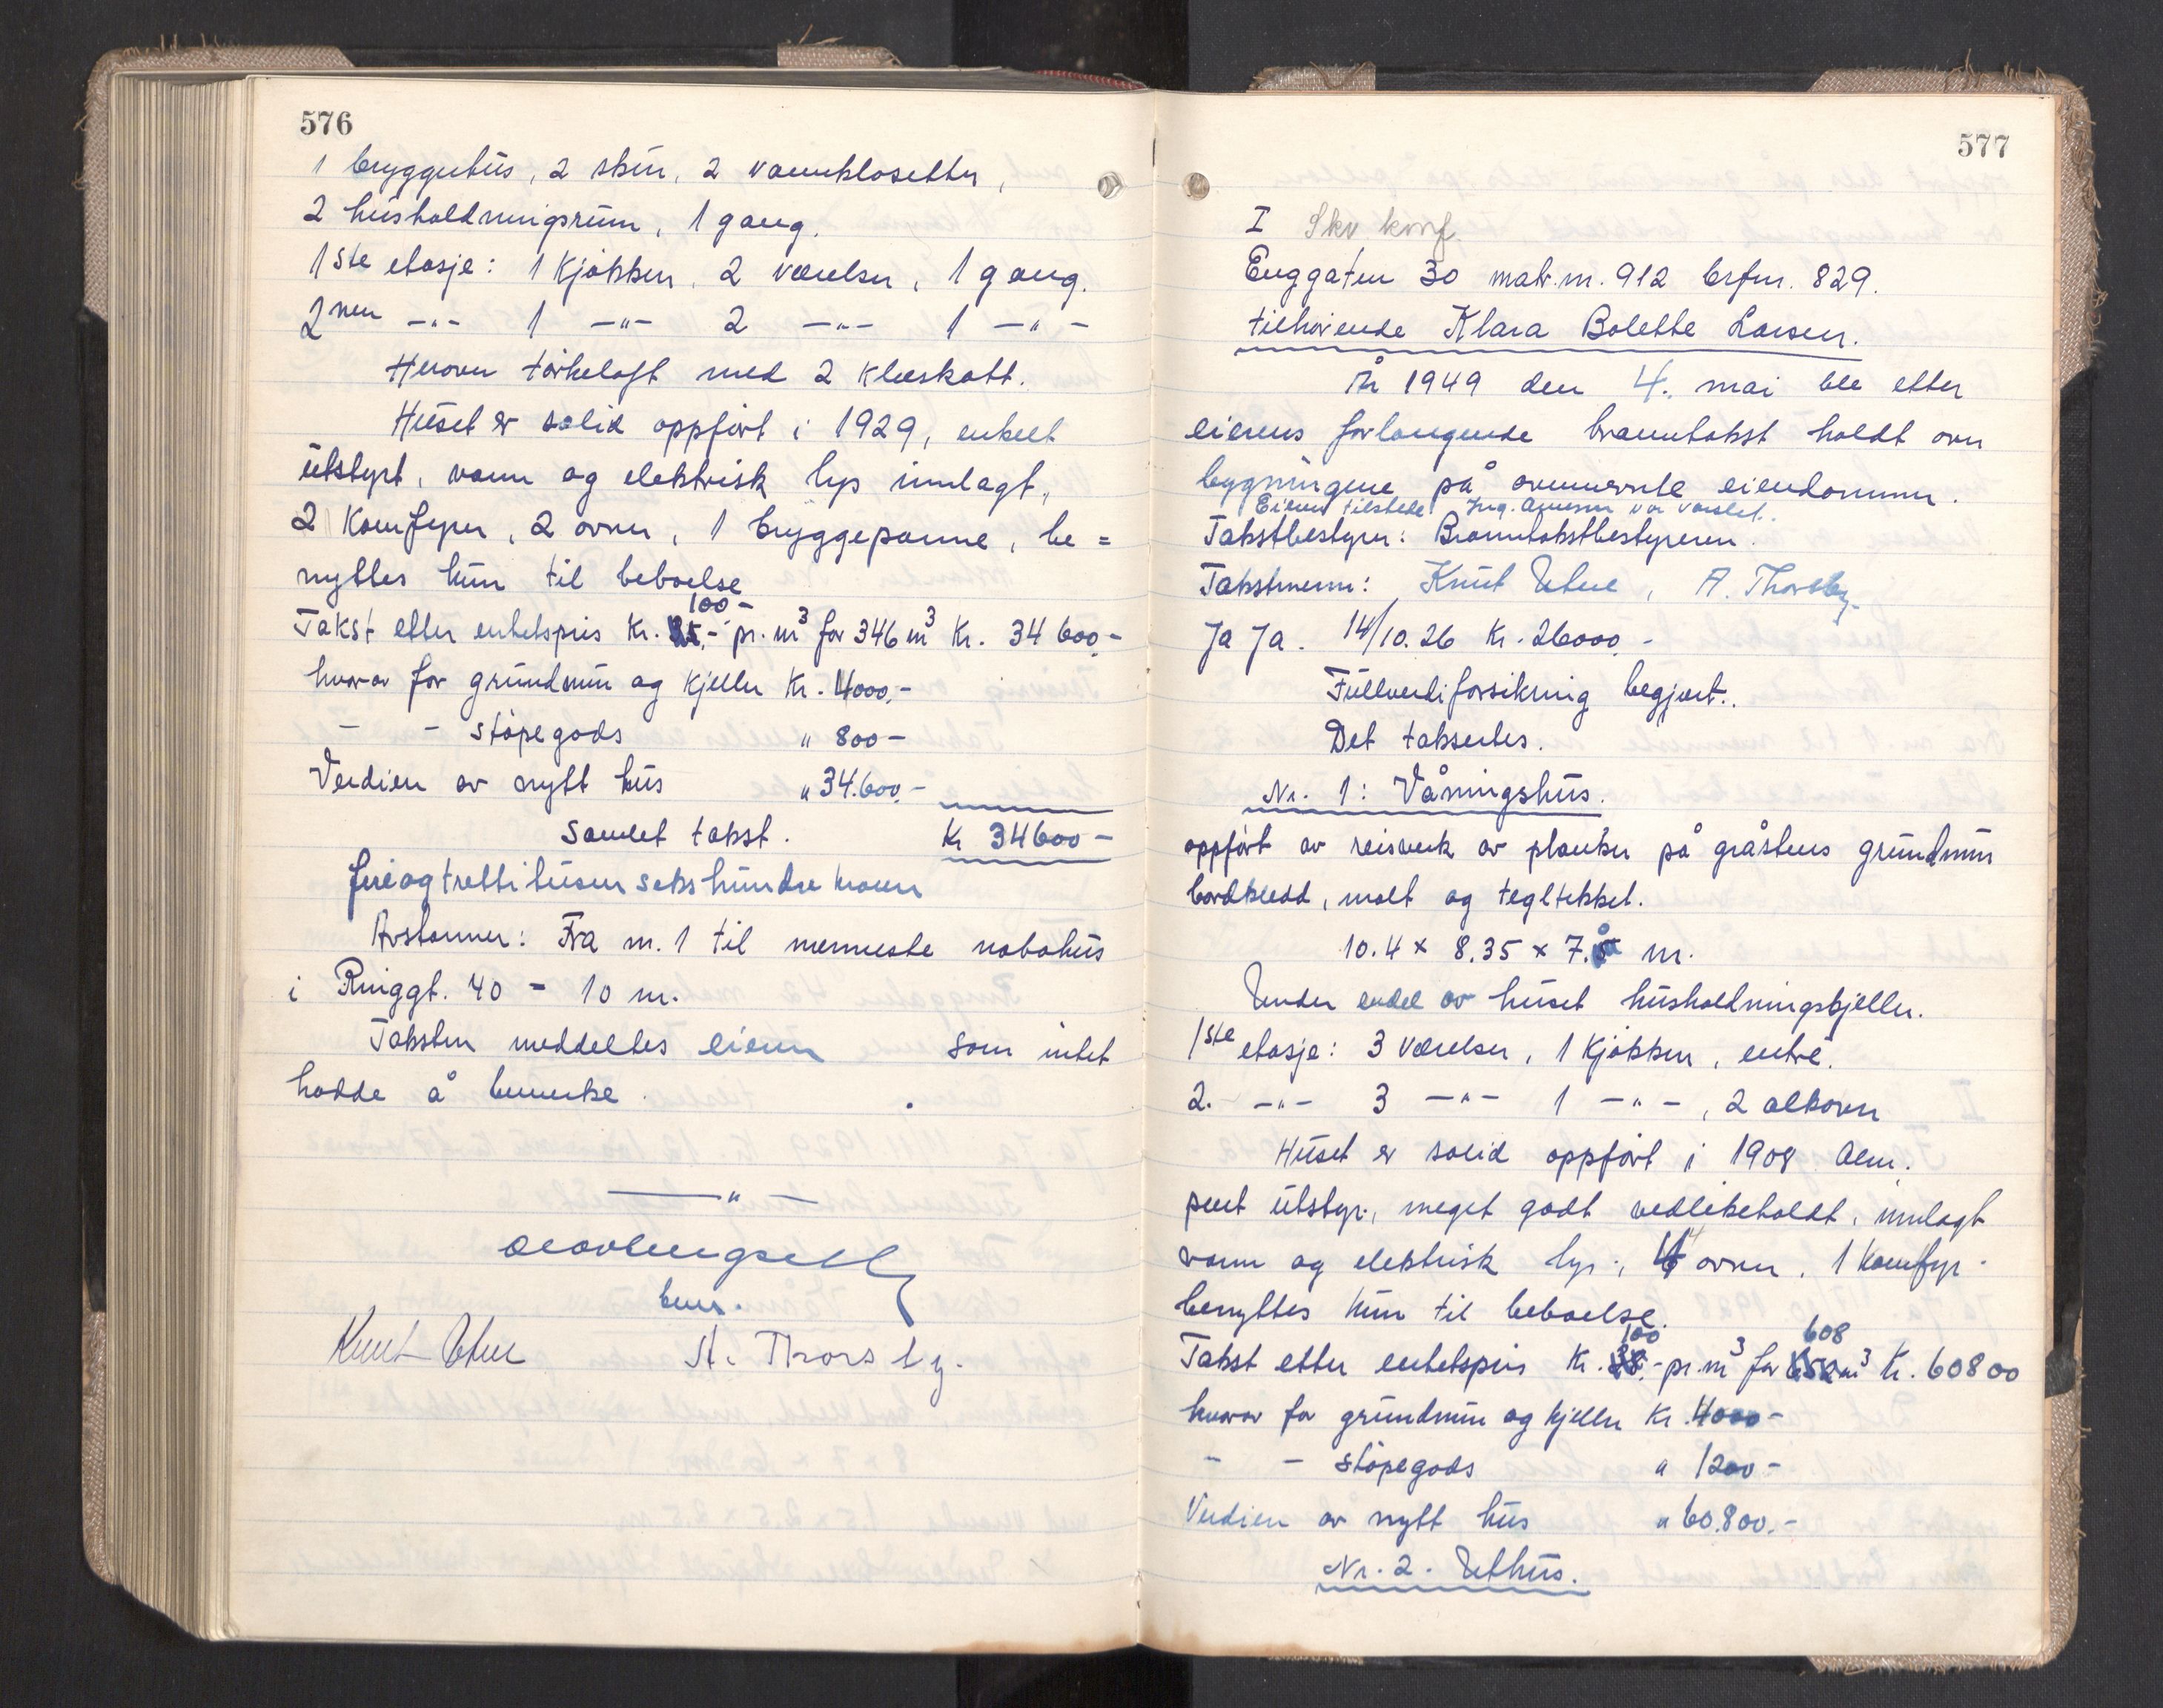 576
1 bryggehus, 2 skur, 2 vannklosetter,
2 husholdningsrum, 1 gang.
1ste etasje: 1 Kjøkken, 2 værelser, 1 gang.
2nen -"- 1 -"- 2 -"- 1 -"-
Herover tørkeloft med 2 kleskott.
Huset er solid oppført i 1929, enkelt
utstyrt, vann og elektrisk lys innlagt,
2 Komfyrer, 2 ovner, 1 bryggepanne, be=
nyttes kun til beboelse
100-
Takst etter enhetspris Kr. 85,- pr. m³ for 346 m³ Kr. 34 600,-
hvorav for grundmur og Kjeller Kr. 4000,-
- - støpegods " 800-
Verdien av nytt hus " 34.600,-
Samlet takst. Kr 34600-
fireogtrettitusensekshundre kroner
Avstanner: Fra nr. 1 til nermeste nabohus
i Ringgt. 40 - 10 m.
Taksten meddeltes eieren som intet
hadde å bemerke.
-"-
Knut Utne A. Thorsby.
577
I Skv konf.
Enggaten 30 matr.nr. 912 brfnr. 829.
tilhørende Klara Bolette Larsen.
År 1949 den 4. mai ble etter
eierens forlangende branntakst holdt over
bygningene på ovennevnte eiendommer.
Eieren tilstede Ing. Arnesen var varslet.
Takstbestyrer: Branntakstbestyreren.
Takstmenn: Knut Utne, A. Thorsby
Ja Ja. 14/10.26 Kr. 26000,-
Fullverdiforsikring begjært.
Det takseres.
Nr. 1: Våningshus.
oppført av reisverk av planker på gråstens grundmur
bordkledd, malt og tegltekket.
10.4 x 8.35 x 7. m.
Under endel av huset husholdningskjeller.
1ste etasje: 3 værelser, 1 Kjøkken, entré.
2. -"- 3 -"- 1 -"-, 2 alkover
Huset er solid oppført i 1908. Alm.
pent utstyr, meget godt vedlikeholdt, innlagt
vann og elektrisk lys, 4 ovner, 1 Komfyr
benyttes kun til beboelse.
100 608
Takst etter enhetspris Kr. 38,- pr. m³ for 652 m³ Kr. 60800
hvorav for grundmur og kjeller Kr. 4000-
- - støpegods " 1200-
Verdien av nytt hus " 60.800.-
Nr. 2. Uthus.